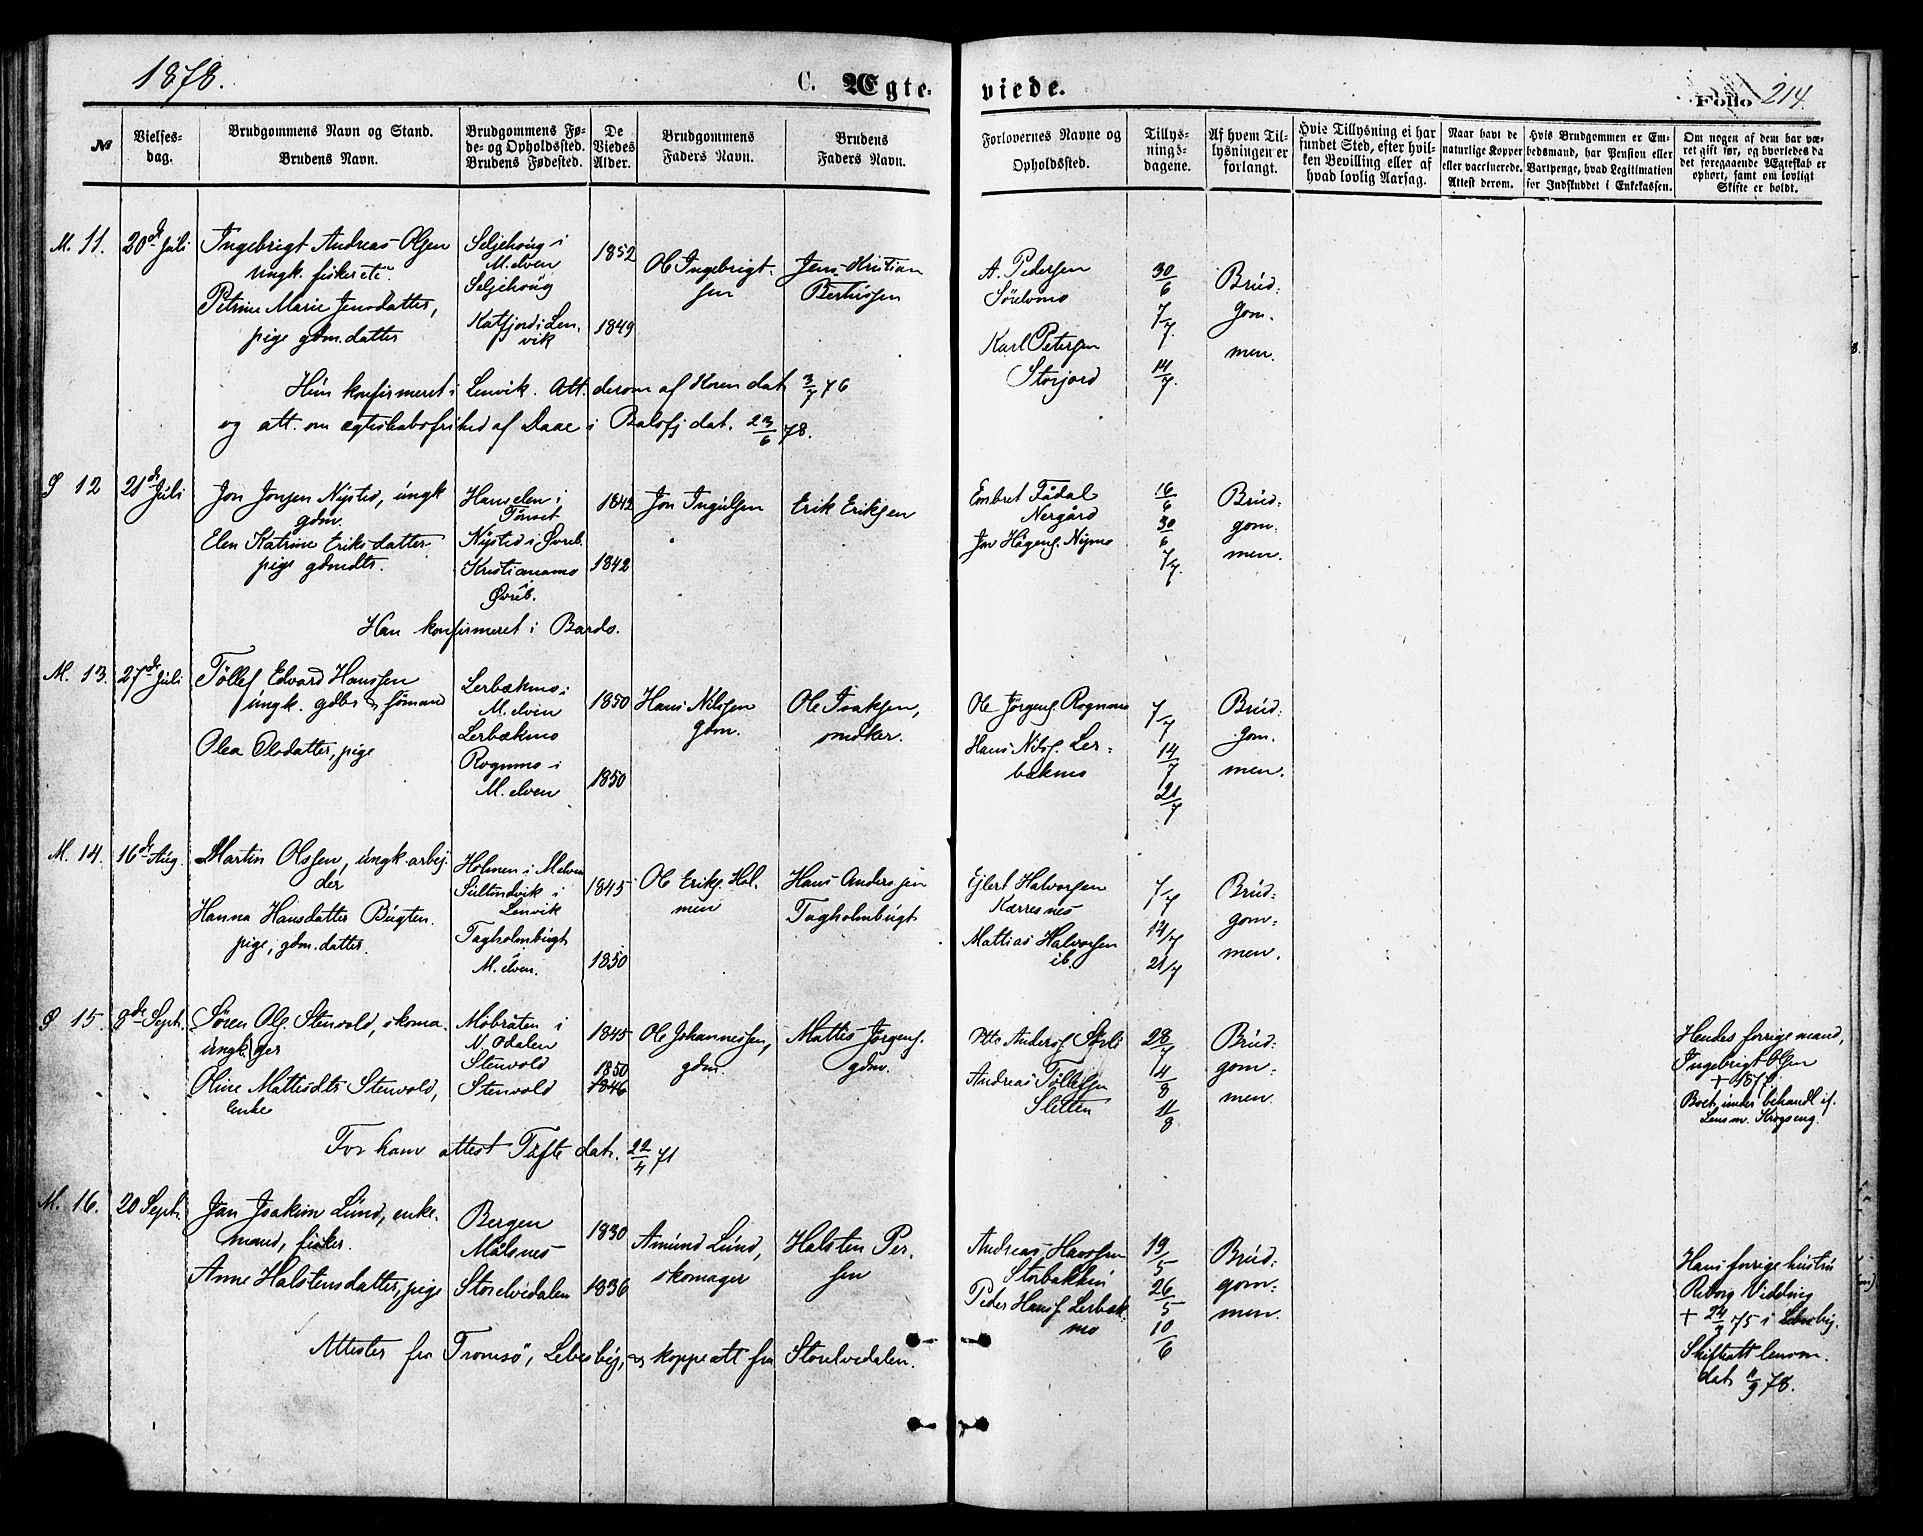 1878.
C. Ægte-
viede.
Folio 214.
№
Vielses-
dag.
Brudgommens Navn og Stand.
Brudens Navn.
Brudgommens Fø-
de- og Opholdssted.
Brudens Fødested.
De
Viedes
Alder.
Brudgommens
Faders Navn.
Brudens
Faders Navn.
Forlovernes Navne og
Opholdssted.
Tillys-
nings-
dagene.
Af hvem Til-
lysningen er
forlangt.
Hvis Tillysning ei har
fundet Sted, efter hvil-
ken Bevilling eller af
hvad lovlig Aarsag.
Naar havt de
naturlige Kopper
eller vaccinerede.
Attest derom.
Hvis Brudgommen er Em-
bedsmand, har Pension eller
Vartpenge, hvad Legitimation
for Indskuddet i Enkekassen.
Om nogen af dem har væ-
ret gift før, og hvorledes da
det foregaaende Ægteskab er
ophørt, samt om lovligt
Skifte er holdt.
M. 11.
20de Juli
Ingebrigt Andreas Olsen
ungk. fisker etc.
Petrine Marie Jensdatter,
pige gdm.datter
Seljehoug i
M.elven
Seljehoug
Katfjord i Len-
vik
1852
1849
Ole Ingebrigt-
sen
Jens Kristian
Berthssen
A. Pedersen
Sörelvmo
Karl Petersen
Storjord
30/6
7/7.
14/7.
Brud-
gom-
men.
Hun konfirmeret i Lenvik. Att. derom af Koren dat 3/7 76
og att. om ægteskabsfrihed af Daae i Balsfj dat. 23/6 78.
S 12
21de Juli
Jon Jonsen Nysted, ungk
gdm.
Elen Katrine Eriksdatter
pige gdmdtr.
Hanselen i
Tønset
Nysted i Øvreb.
Kristianamo
Øvreb.
1842
1842
Jon Ingulsen
Erik Eriksen
Embret Fådal
Nergård
Jon Hågens. Nymo
16/6
30/6
7/7.
Brud-
gom-
men.
Han konfirmeret i Bardo.
M. 13.
27de Juli
Tollef Edvard Hanssen
ungk. gdbr & sömand
Olea Olsdatter, pige
Lerbækmo i
M.elven
Lerbækmo
Rognmo i
M.elven
1850
1850
Hans Nilssen
gdm.
Ole Isaksen,
snedker.
Ole Jörgens. Rognmo
Hans Nilss. Ler-
bækmo
7/7
14/7
21/7
Brud-
gom-
men.
M. 14.
16de Aug.
Martin Olssen, ungk. arbej-
der
Hanna Hansdatter Bugten.
pige, gdm.datter.
Holmen i Melven
Sultindvik i
Lenvik
Tagholmbugt
M.elven.
1845
1850
Ole Eriks. Hol-
men
Hans Anderssen
Tagholmbugt
Ejlert Halvorsen
Kærresnes
Mattias Halvorsen
ib.
7/7
14/7
21/7
Brud-
gom-
men.
S 15.
8de Sept.
Sören Ols. Stenvold, skoma-
ungk. ger
Oline Mattisdtr Stenvold,
enke
Mobråten i
N. Odalen
Stenvold
Stenvold
1845
1850
1846
Ole Johannessen,
gdm.
Mattis Jörgens.
gdm.
Otto Anders. Skrli
Andreas Tollefsen
Sletten
28/7
4/8
11/8
Brud-
gom-
men.
Hendes forrige mand,
Ingebrigt Olsen
+ 187
Boet under behandl. af
Lensm. Krogseng.
For ham attest Tofte dat. 22/4 71
M. 16.
20 Sept.
Jan Joakim Lund, enke-
mand, fisker.
Anne Halstensdatter, pige
Bergen
Målsnes
Storelvedalen
1830
1836
Amund Lund,
skomager
Halsten Per-
sen
Andreas Hanssen
Storbakken
Peder Hans. Lerbæk-
mo
19/5
26/5
10/6
Brud-
gom-
men.
Hans forrige hustru
Viddinng
+ 24/4 75 i Lebesby.
Skifteatt lensm.
dat. 11/9 78.
Attester fra Tromsö, Lebesby, & koppeatt fra Storelvedalen.